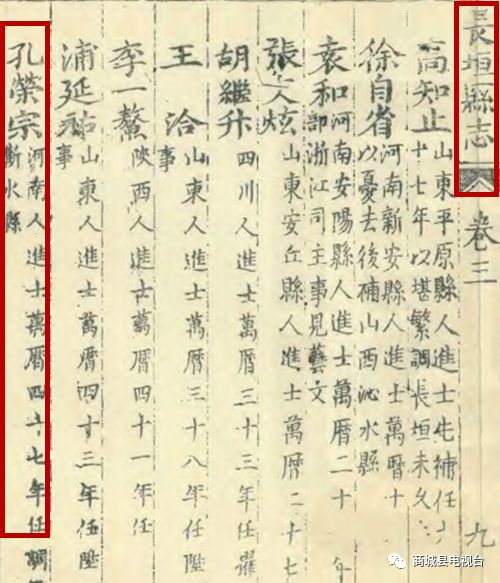 長垣縣志 卷三 九
高知止 山東平原縣人進士先補任
十七年以堪繁調長垣未久
徐自省 河南新安縣人進士萬曆十
以憂去後補山西沁水縣
袁和 河南安陽縣人進士萬曆二十 年
部浙江司主事見藝文
張文炫 山東安丘縣人進士萬曆二十七
胡繼升 四川人進士萬曆三十三年任擢
王洽 山東人進士萬曆三十八年任陞
事
李一鰲 陝西人進士萬曆四十一年任
浦延祐 山東人進士萬曆四十三年任陞
事
孔榮宗 河南人進士萬曆四十七年任調
水縣
商城县电视台